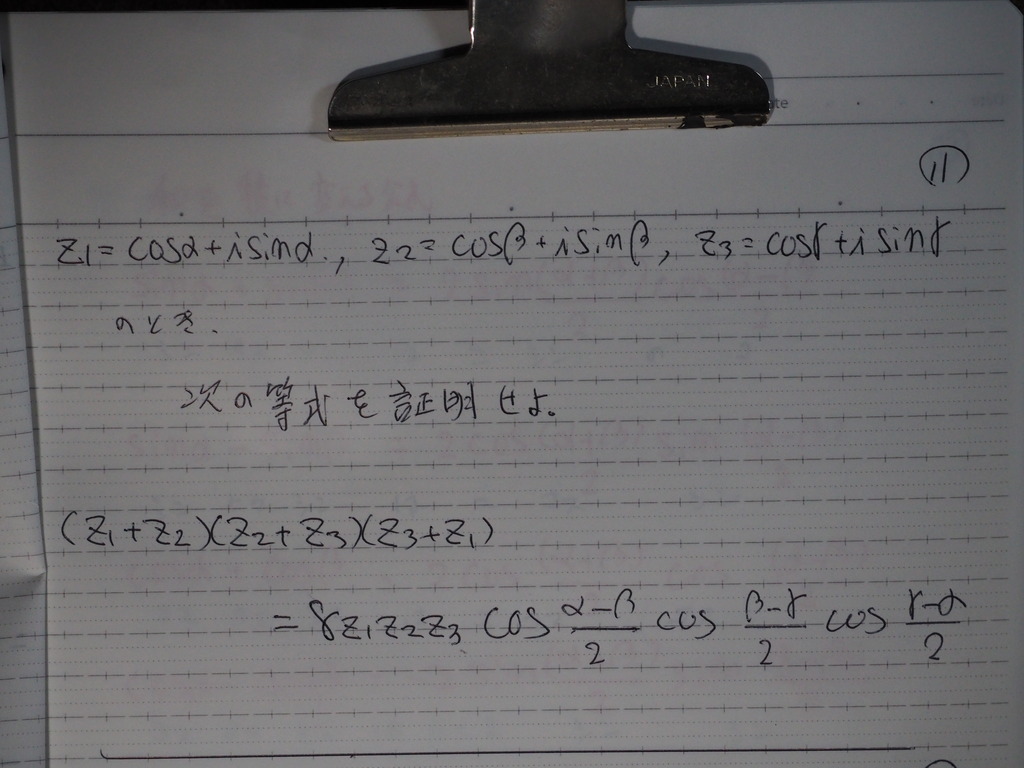 JAPAN
⑪
z1 = cosα + i sinα., z2 = cosβ + i sinβ, z3 = cosγ + i sinγ
のとき.
次の等式を証明せよ。
(z1+z2)(z2+z3)(z3+z1)
= 8z1z2z3 cos (α-β)/2 cos (β-γ)/2 cos (γ-α)/2